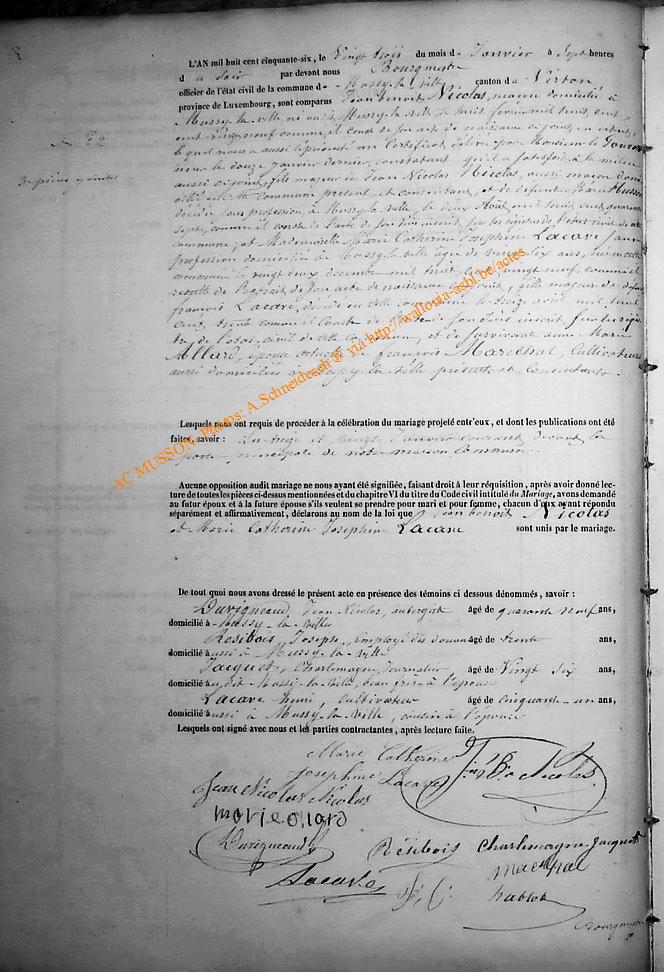 L'AN mil huit cent cinquante-six, le Vingt trois du mois de Janvier à Sept heures
du soir par devant nous Bourgmestre
officier de l'état civil de la commune de Mussy-la-ville canton de Virton
province de Luxembourg, sont comparus Jean benoit Nicolas, maçon domicilié à
Mussy-la-ville né au dit Mussy-la-ville le huit février mil huit cent
vingt neuf comme il conste de son acte de naissance ci joint,
lequel nous a aussi représenté un Certificat délivré par Monsieur le Gouver
neur le douze janvier dernier, constatant qu'il a satisfait à la milice
aussi ci joint, fils majeur de Jean Nicolas Nicolas, aussi maçon domi
cilié en cette commune présent et consentant, et de défunte Husson
décédée sans profession, à Mussy-la-ville le deux Août mil huit cent quarante
sept, comme il conste de l'acte de son décès inscrit sur les registres de l'état civil de cette
commune; et Mademoiselle Marie Catherine Josephine Lacave sans
profession domiciliée à Mussy-la-ville âgée de vingt six ans, née en cette
commune le vingt deux décembre mil huit cent vingt neuf, comme il
résulte de l'extrait de son acte de naissance ci joint, fille majeure de défunt
françois Lacave, décédé en cette commune le trois août mil huit
cent trente comme il Conste de l'acte de son décès inscrit sur les regis
tres de l'état civil de cette Commune, et de survivante anne Marie
Allard, épouse actuelle de françois Maréchal, Cultivateurs
aussi domiciliés à Mussy la ville présents et Consentants.
N° 2
Lesquels nous ont requis de procéder à la célébration du mariage projeté entr'eux, et dont les publications ont été
faites, savoir : Les treize et vingt Janvier courant devant la
porte principale de notre maison Commune.
Aucune opposition audit mariage ne nous ayant été signifiée, faisant droit à leur réquisition, après avoir donné lec-
ture de toutes les pièces ci-dessus mentionnées et du chapitre VI du titre du Code civil intitulé du Mariage, avons demandé
au futur époux et à la future épouse s'ils veulent se prendre pour mari et pour femme, chacun d'eux ayant répondu
séparément et affirmativement, déclarons au nom de la loi que Jean benoit Nicolas
et Marie Catherine Josephine Lacave sont unis par le mariage.
De tout quoi nous avons dressé le présent acte en présence des témoins ci dessous dénommés, savoir :
Duvigneaud, Jean Nicolas, aubergiste âgé de quarante neuf ans,
domicilié à Mussy-la-ville
Résibois, Joseph, employé des douanes âgé de trente ans,
domicilié aussi à Mussy-la-ville
Jacquet, Charlemagne, Journalier âgé de Vingt six ans,
domicilié au dit Mussy-la-ville, beau frère à l'époux
Lacave henri, Cultivateur âgé de cinquante-un ans,
domicilié aussi à Mussy-la-ville, cousin à l'épouse
Lesquels ont signé avec nous et les parties contractantes, après lecture faite.
Marie Catherine
Josephine Lacave
Jean Nicolas Nicolas
Duvigneaud
Résibois Charlemagne Jacquet
Lacave
Bourgmestre
AC MUSSON. Photos: A.Schneidesch @ via http://wallonia-asbl.be/actes